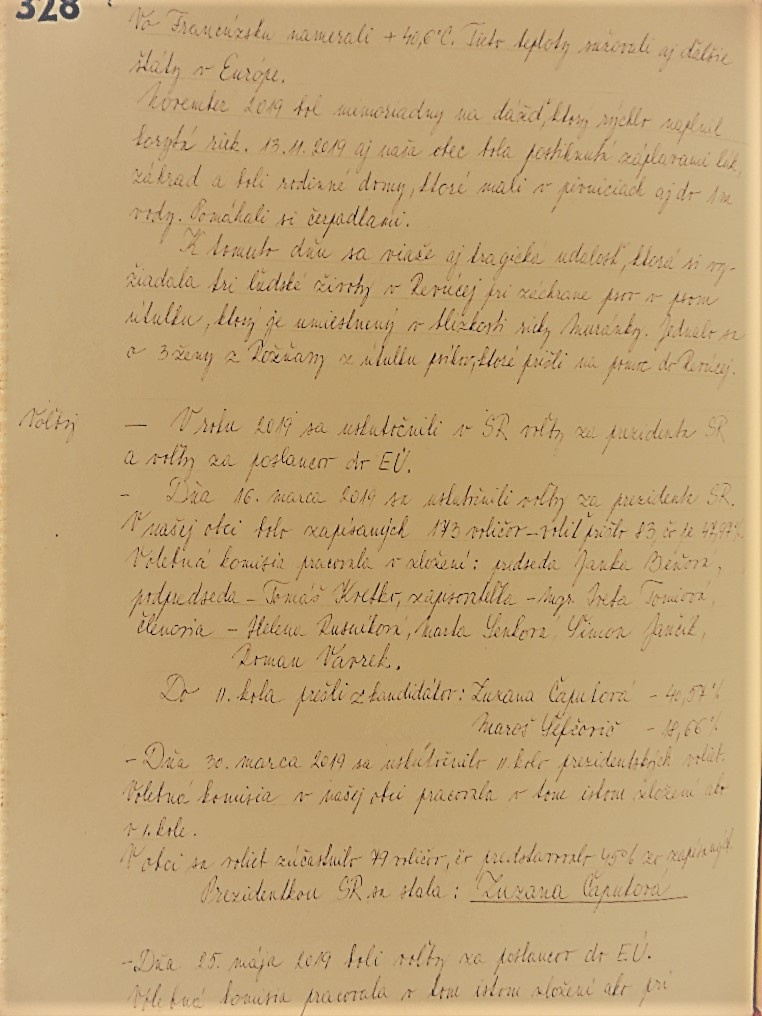 328
Vo Francúzsku namerali + 40,6°C. Tieto teploty sužovali aj ďalšie
štáty v Európe.
November 2019 bol mimoriadny na dážď, ktorý rýchlo naplnil
korytá riek. 13.11.2019 aj naša obec bola postihnutá záplavami lúk,
záhrad a boli rodinné domy, ktoré mali v pivniciach aj do 1m
vody. Pomáhali si čerpadlami.
K tomuto dňu sa viaže aj tragická udalosť, ktorá si vy-
žiadala tri ľudské životy v Revúcej pri záchrane psov v psom
útulku, ktorý je umiestnený v blízkosti rieky Muránky. Jednalo sa
o 3 ženy z Rožňavy z útulku psíkov, ktoré prišli na pomoc do Revúcej.
Voľby
— V roku 2019 sa uskutočnili v SR voľby za prezidenta SR
a voľby za poslancov do EÚ.
- Dňa 16. marca 2019 sa uskutočnili voľby za prezidenta SR.
V našej obci bolo zapísaných 173 voličov – voliť prišlo 83, čo je 47,97%
Volebná komisia pracovala v zložení: predseda Janka
podpredseda – Tomáš Kvetko, zapisovateľka – Mgr. Iveta Tomčová,
členovia – Helena Rusniková, Marta Šimon Jančík,
Roman Vavrek.
Do II. kola prešli z kandidátov: Zuzana Čaputová – 40,57%
Maroš Šefčovič – 18,66%
- Dňa 30. marca 2019 sa uskutočnilo II. kolo prezidentských volieb.
Volebná komisia v našej obci pracovala v tom istom zložení ako
v I. kole.
V obci sa volieb zúčastnilo 79 voličov, čo predstavovalo 45% zo zapísaných
Prezidentkou SR sa stala: Zuzana Čaputová
- Dňa 25. mája 2019 boli voľby za poslancov do EÚ.
Volebná komisia pracovala v tom istom zložení ako pri